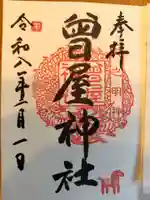 奉拝
曾屋神社
令和八年二月一日